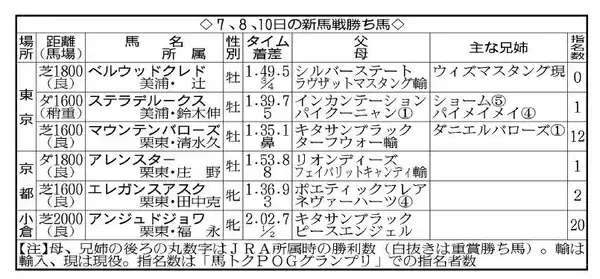 ◇7、8、10日の新馬戦勝ち馬◇
場所 距離(馬場) 馬名 所属 性別 タイム 着差 父 母 主な兄姉 指名数
東京 芝1800(良) ベルウッドクレド 美浦・辻 牡 1.49.5 ¾ シルバーステート ラヴザットマスタング輸 ウィズマスタング現 0
ダ1600(稍重) ステラデルークス 美浦・鈴木伸 牡 1.39.7 5 インカンテーション パイクーニャン① ショーム⑤ パイメイメイ④ 1
芝1600(良) マウンテンバローズ 栗東・清水久 牡 1.35.1 鼻 キタサンブラック ターフウォー輸 ダニエルバローズ① 12
京都 ダ1800(良) アレンスター 栗東・庄野 牡 1.53.8 8 リオンディーズ フェイバリットキャンディ輸 1
芝1600(良) エレガンスアスク 栗東・田中克 牝 1.36.9 3 ポエティックフレア ネヴァーハーツ④ 2
小倉 芝2000(良) アンジュドジョワ 栗東・福永 牝 2.02.7 ½ キタサンブラック ピースエンジェル 20
【注】母、兄姉の後ろの丸数字はJRA所属時の勝利数(白抜きは重賞勝ち馬)。輸は
輸入、現は現役。指名数は「馬トクPOGグランプリ」での指名者数